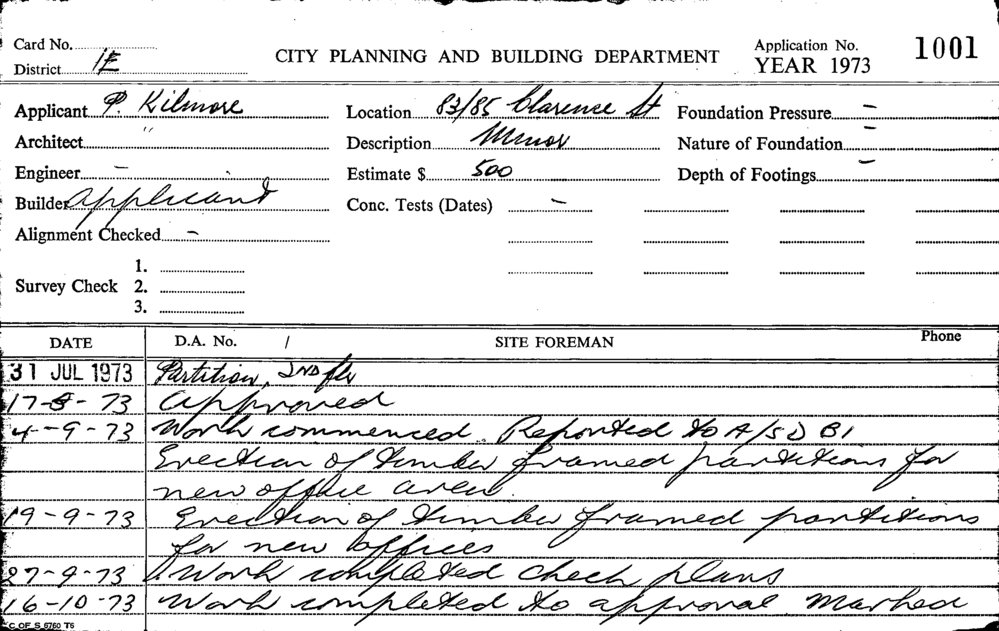 Card No.
District 1E
CITY PLANNING AND BUILDING DEPARTMENT
Application No. 1001
YEAR 1973
Applicant P. Kilmore
Location 83/85 Clarence St
Foundation Pressure –
Architect "
Description Minor
Nature of Foundation –
Engineer –
Estimate $ 500
Depth of Footings –
Builder Applicant
Conc. Tests (Dates) –
Alignment Checked –
Survey Check 1.
2.
3.
DATE D.A. No. / SITE FOREMAN Phone
31 JUL 1973 Partition, 2ND flr
17-8-73 Approved
4-9-73 Work commenced. Reported to A/SD BI
Erection of timber framed partitions for
new office area.
19-9-73 Erection of timber framed partitions
for new offices
27-9-73 Work completed check plans
16-10-73 Work completed to approval Marked
C OF S 6760 T6